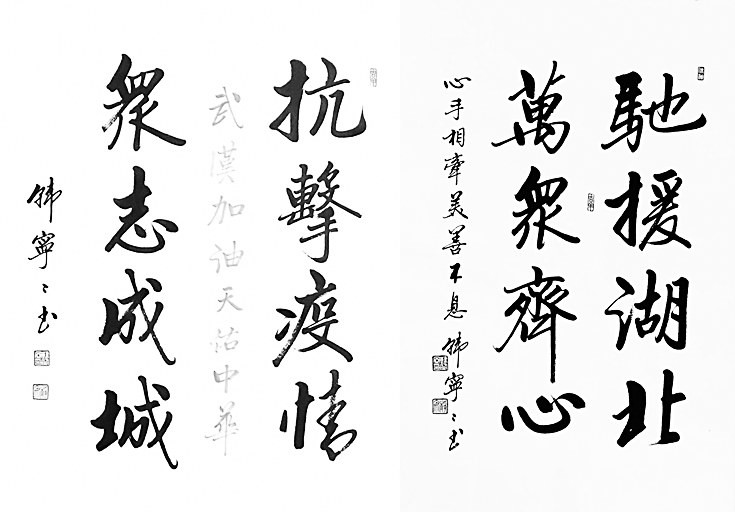 馳援湖北
萬衆齊心
心手相牽美善不息
韩寧〻书
抗擊疫情
武漢加油天佑中華
衆志成城
韩寧〻书